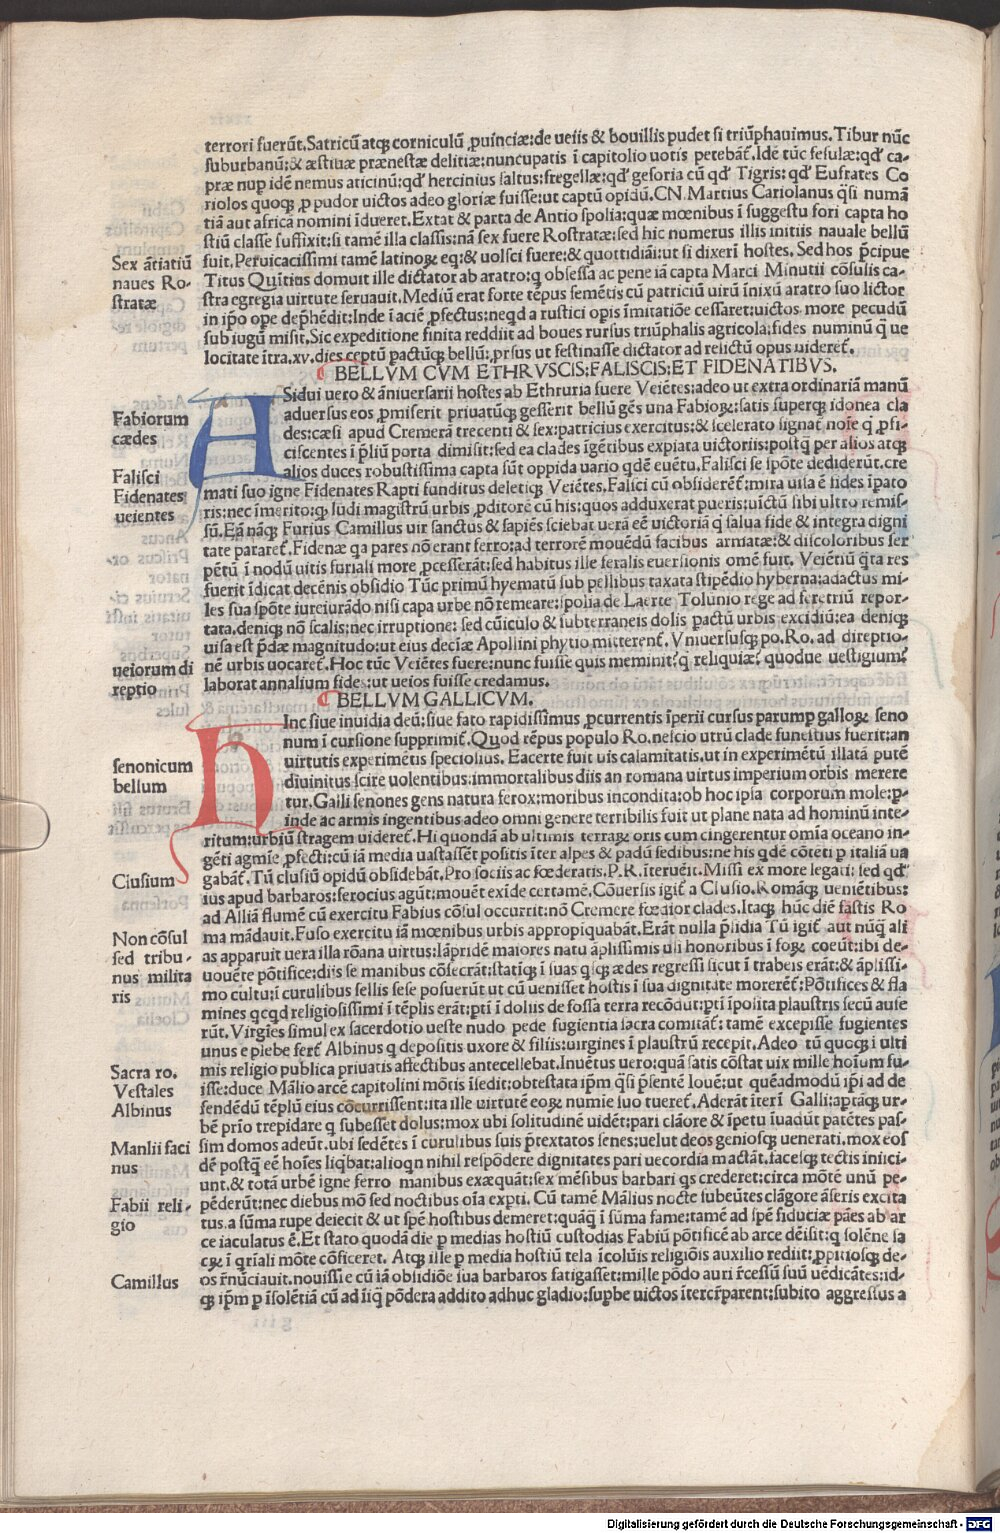 terrori fuerūt. Satricū atqꝫ corniculū ꝓuinciæ: de ueiis & bouillis pudet si triūphauimus. Tibur nūc
suburbanū: & æstiuæ prænestæ delitiæ: nuncupatis ī capitolio uotis petebāt̃. Idē tūc fesulæ: qđ ca-
præ nuꝑ idē nemus aticinū: qđ hercinius saltus: fregellæ: qđ gesoria cū qđ Tigris: qđ Eufrates Co
riolos quoqꝫ ꝓ pudor uictos adeo gloriæ fuisse: ut captū opidū. CN. Martius Cariolanus q̄si numā
tiā aut africā nomini īdueret. Extāt & parta de Antio spolia: quæ mœnibus ī suggestu fori capta ho
stiū classe suffixit: si tamē illa classis: nā sex fuere Rostratæ: sed hic numerus illis initiis nauale bellū
fuit. Peruicacissimi tamē latinoꝝ eq: & uolsci fuere: & quottidiāi: ut si dixerī hostes. Sed hos p̄cipue
Titus Quītius domuit ille dictator ab aratro: q obsessa ac pene iā capta Marci Minutii cōsulis ca-
stra egregia uirtute seruauit. Mediū erat forte tēpus semētis cū patriciū uirū īnixū aratro suo lictor
in ip̄o oꝑe dep̄hēdit: Inde ī aciē ꝓfectus: neqd a rustici opis īmitatiōe cessaret: uictos more pecudū
sub iugū misit. Sic expeditione finita rediit ad boues rursus triūphalis agricola: fides numinū q̄ ue
locitate ītra. xv. dies ceptū ꝑactūqꝫ bellū: ꝓrsus ut festinasse dictator ad relictū opus uideret̃.
BELLVM CVM ETHRVSCIS: FALISCIS: ET FIDENATIBVS.
ASidui uero & āniuersarii hostes ab Ethruria fuere Veiētes: adeo ut extra ordinariā manū
aduersus eos ꝓmiserit priuatūqꝫ gesserit bellū gēs una Fabioꝝ: satis superqꝫ idonea cla
des: cæsi apud Cremerā trecenti & sex: patricius exercitus: & scelerato signat̃ noīe q ꝓfi-
ciscentes ī p̄liū porta dimisit: sed ea clades īgētibus expiata uictoriis: postq̄ per alios atqꝫ
alios duces robustissima capta sūt oppida uario qdē euētu. Falisci se spōte dediderūt. cre
mati suo igne Fidenates Rapti funditus deletiqꝫ Veiētes. Falici cū obsiderēt̃: mira uisa ē fides īpato
ris: nec īmerito: qꝫ ludi magistrū urbis ꝓditorē cū his: quos adduxerat pueris: uictū sibi ultro remis-
sū. Eā nāqꝫ Furius Camillus uir sanctus & sapiēs sciebat uerā eē uictoriā q̄ salua fide & integra digni
tate pataret̃. Fidenæ qa pares nō erant ferro: ad terrorē mouēdū facibus armatæ: & discoloribus ser
pētū ī nodū uitis furiali more ꝓcesserāt: sed habitus ille feralis euersionis omē fuit. Veiētiū q̄ta res
fuerit īdicat decēnis obsidio Tūc primū hyematū sub pellibus taxata stipēdio hyberna: adactus mi-
les sua spōte iureiurādo nisi capa urbe nō remeare: spolia de Laerte Tolunio rege ad feretriū repor-
tata. deniqꝫ nō scalis: nec irruptione: sed cūiculo & subterraneis dolis ꝑactū urbis excidiū: ea deniqꝫ
uisa est p̄dæ magnitudo: ut eius decīæ Apollini phytio mitterent̃. Vniuersusqꝫ po. Ro. ad direptio-
nē urbis uocaret̃. Hoc tūc Veiētes fuere: nunc fuisse quis meminit? q̄ reliquiæ? quodue uestigium?
laborat annalium fides: ut ueios fuisse credamus.
BELLVM GALLICVM.
HInc siue inuidia deū: siue fato rapidissimus ꝓcurrentis īperii cursus parumꝑ galloꝝ seno
num ī cursione supprimit̃. Quod tēpus populo Ro. nescio utrū clade funestius fuerit: an
uirtutis experimētis speciosius. Ea certe fuit uis calamitatis. ut in experimētū illatā putē
diuinitus scire uolentibus: immortalibus diis an romana uirtus imperium orbis merere
tur. Galli senones gens natura ferox: moribus incondita: ob hoc ipsa corporum mole: ꝑ
inde ac armis ingentibus adeo omni genere terribilis fuit ut plane nata ad hominū inte-
ritum: urbiū stragem uideret̃. Hi quondā ab ultimis terraꝝ oris cum cingerentur omīa oceano in-
gēti agmīe ꝓfecti: cū iā media uastassēt positis īter alpes & padū sedibus: ne his qdē cōtēti ꝑ italiā ua
gabāt̃. Tū clusiū opidū obsidebāt. Pro sociis ac fœderatis. P. R. īteruēit. Missi ex more legati: sed qđ
ius apud barbaros: ferocius agūt: mouēt exīde certamē. Cōuersis igit̃ a Clusio. Romāqꝫ ueniētibus:
ad Alliā flumē cū exercitu Fabius cōsul occurrit: nō Cremere fœdior clades. Itaqꝫ hūc diē fastis Ro
ma mādauit. Fuso exercitu iā mœnibus urbis appropiquabāt. Erāt nulla p̄sidia Tū igit̃ aut nūq̄ ali
as apparuit uera illa rōana uirtus: īāpridē maiores natu āplissimis usi honoribus ī foꝝ coeūt: ibi de-
uouēte pōtifice: diis se manibus cōsecrāt: statīqꝫ ī suas qsqꝫ ædes regressi sicut ī trabeis erāt: & āplissi-
mo cultu: ī curulibus sellis sese posuerūt ut cū uenisset hostis ī sua dignitate morerēt̃: Pōtifices & fla
mines qcqd religiosissimi ī tēplis erāt: ꝑtī ī doliis de fossa terra recōdūt: ꝑtī īposita plaustris secū aufe
rūt. Virgīes simul ex sacerdotio ueste nudo pede fugientia sacra comitāt̃: tamē excepisse fugientes
unus e plebe fert̃ Albinus q depositis uxore & filiis: uirgines ī plaustrū recepit. Adeo tū quoqꝫ ī ulti
mis religio publica priuatis affectibus antecellebat. Inuētus uero: quā satis cōstat uix mille hoīum fu-
isse: duce Mālio arcē capitolini mōtis īsedit: obtestata ip̄m q̄si p̄sentē Iouē: ut quēadmodū ip̄i ad de
fendēdū tēplū eius cōcurrissent: ita ille uirtutē eoꝝ numīe suo tueret̃. Aderāt īterī Galli: aptāqꝫ ur-
bē prīo trepidare q subesset dolus: mox ubi solitudinē uidēt: pari clāore & īpetu īuadūt patētes pas-
sim domos adeūt. ubi sedētes ī curulibus suis p̄textatos senes: uelut deos geniosqꝫ uenerati. mox eos
dē postq̄ eē hoīes liqbat: alioqn nihil respōdere dignitates pari uecordia mactāt. facesqꝫ tectis iniici-
unt. & totā urbē igne ferro manibus exæquāt: sex mēsibus barbari qs crederet: circa mōtē unū pe-
pēderūt: nec diebus mō sed noctibus oīa expti. Cū tamē Mālius nocte subeūtes clāgore āseris excita
tus. a sūma rupe deiecit & ut spē hostibus demeret: quāq̄ ī sūma fame: tamē ad spē fiduciæ pāes ab ar
ce iaculatus ē. Et stato quodā die ꝑ medias hostiū custodias Fabiū pōtificē ab arce dēisit: q solēne sa
cꝝ ī qrīali mōte cōficeret. Atqꝫ ille ꝑ media hostiū tela īcolūis religiōis auxilio rediit: ꝓpitiosqꝫ de-
os r̄nūciauit. nouissīe cū iā obsidiōe sua barbaros fatigasset: mille pōdo auri r̄cessū suū uēdicātes: id-
qꝫ ip̄m ꝑ īsolētiā cū ad īiq̄ pōdera addito adhuc gladio: suꝑbe uictos īterc̄rparent: subito aggressus a
Sex āntiatiū
naues Ro-
stratæ
Fabiorum
cædes
Falisci
Fidenates
ueientes
ueiorum di
reptio
senonicum
bellum
Clusium
Non cōsul
sed tribu-
nus milita
ris
Sacra ro.
Vestales
Albinus
Manlii faci
nus
Fabii reli-
gio
Camillus
Digitalisierung gefördert durch die Deutsche Forschungsgemeinschaft - DFG